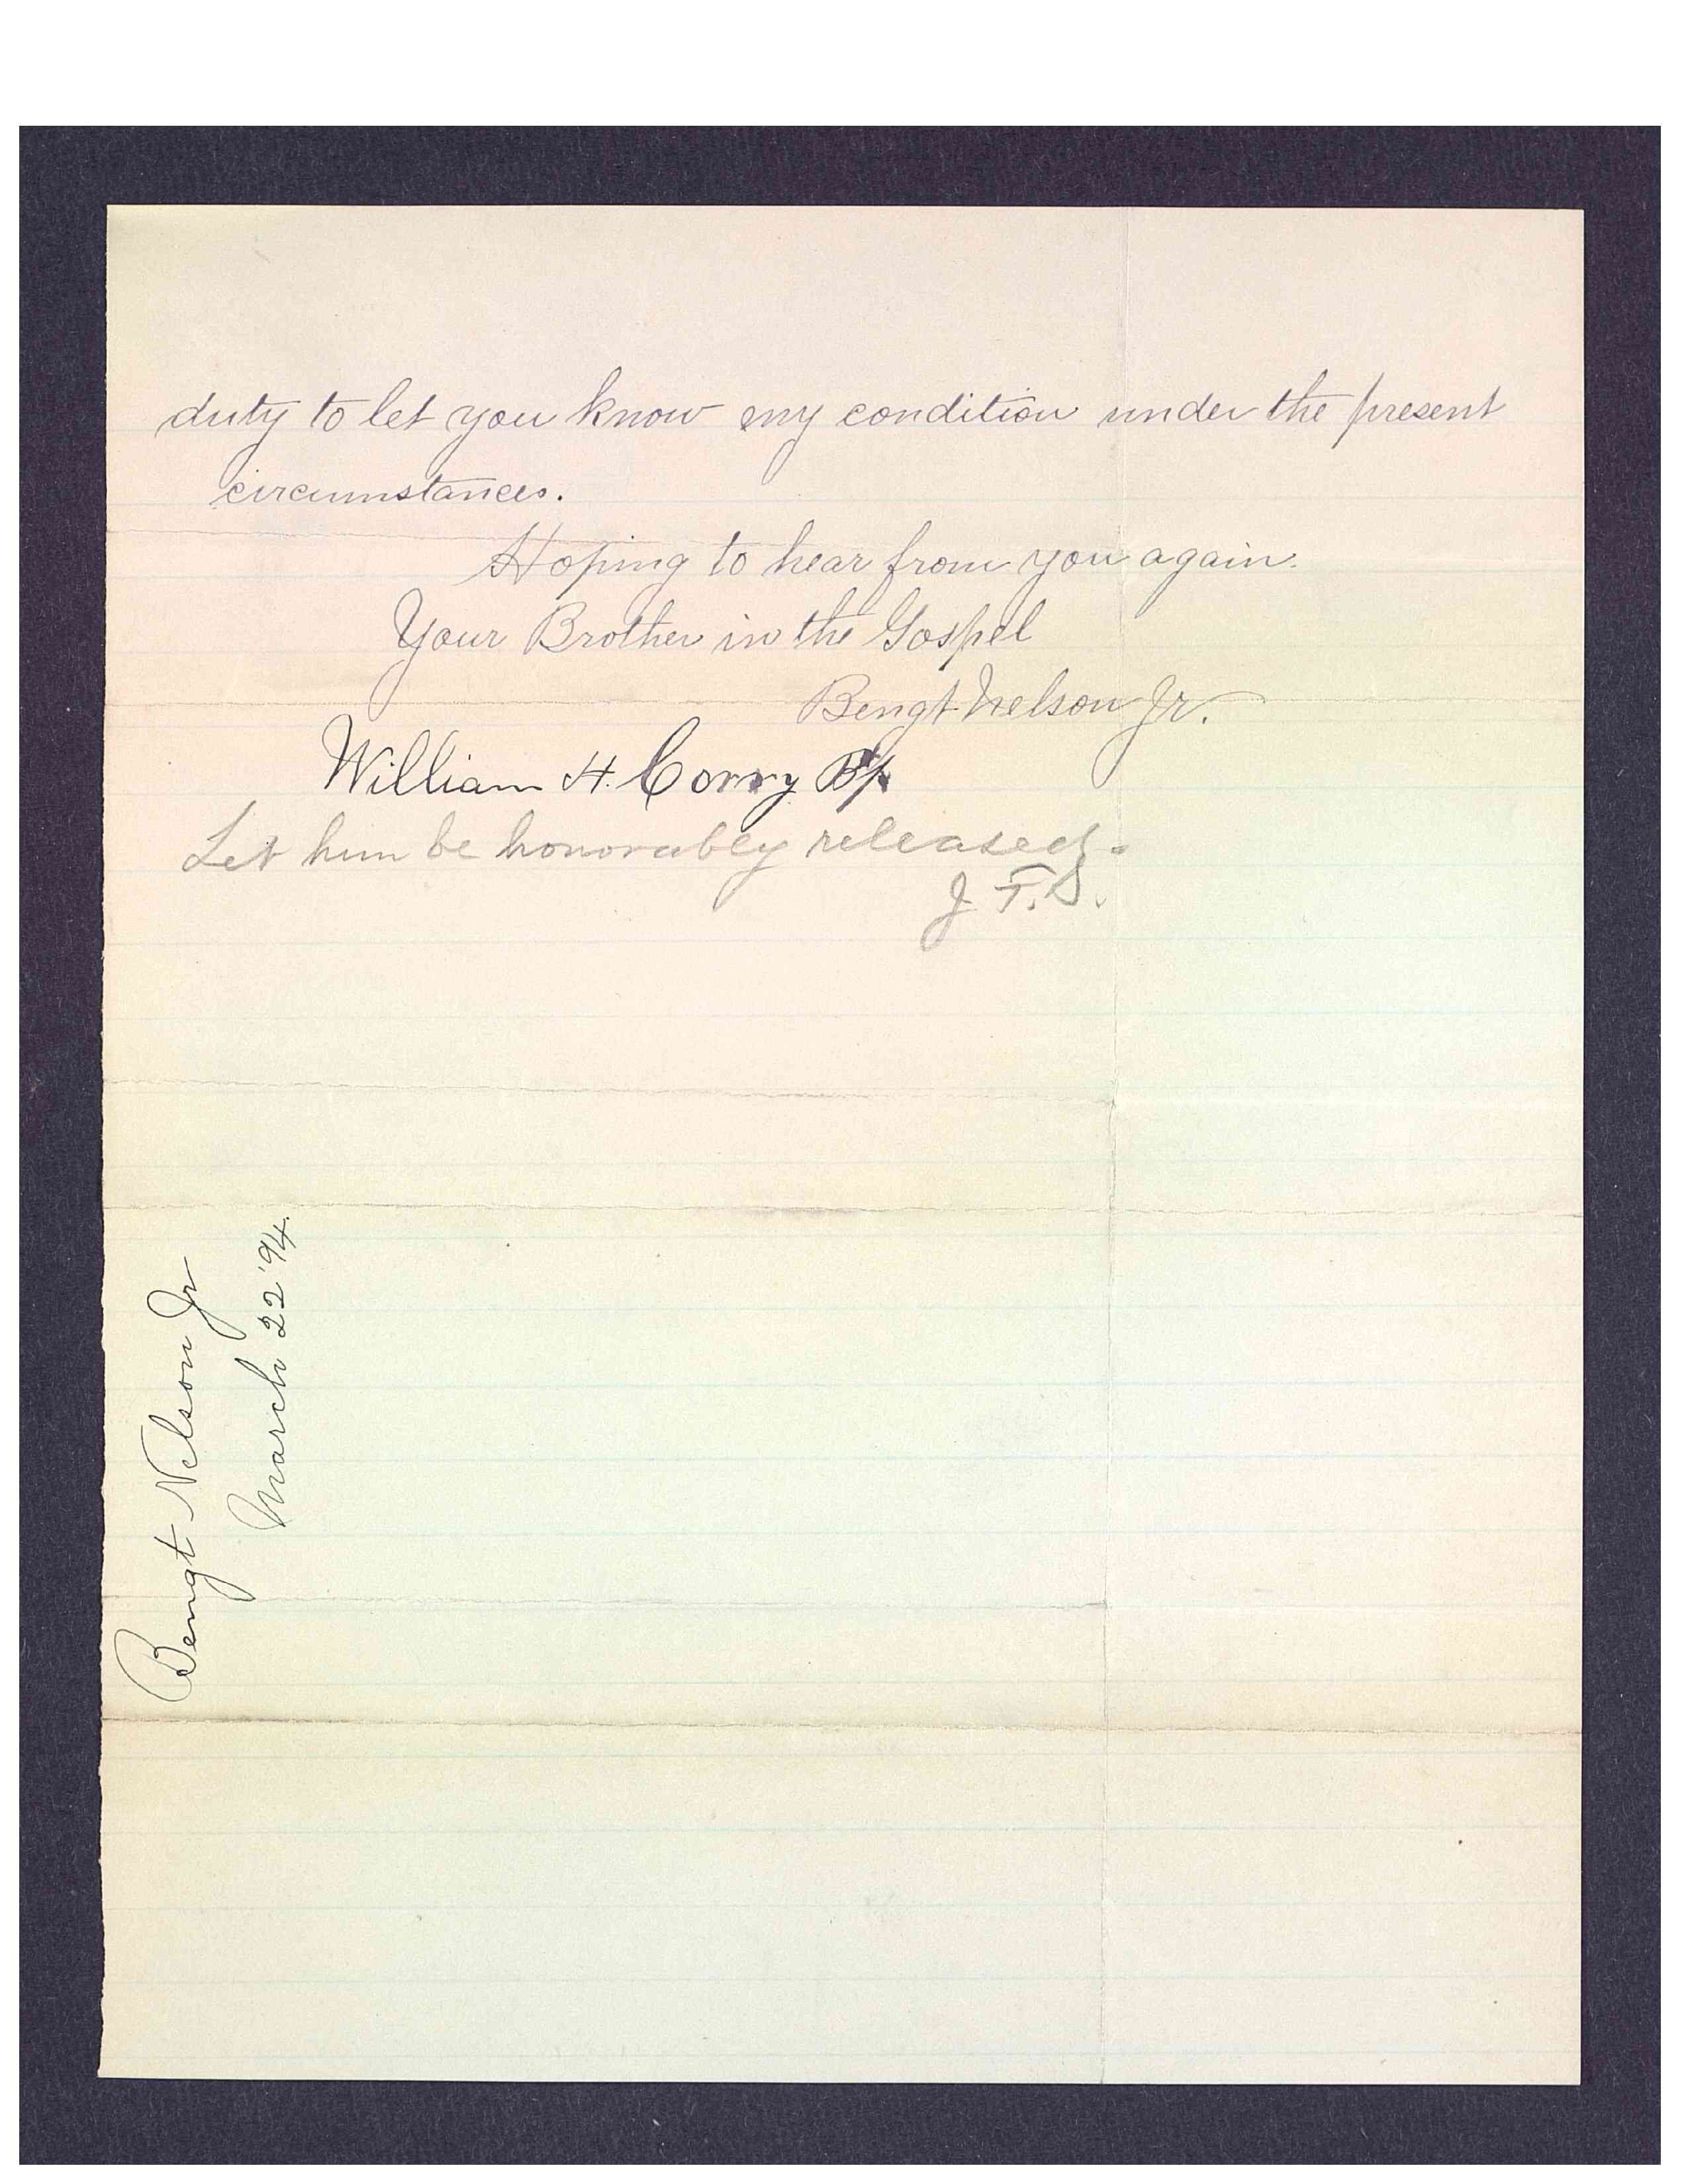 duty to let you know my condition under the present
circumstances.
Hoping to hear from you again.
Your Brother in the Gospel
Bengt Nelson Jr.
William H. Corry Bp
Let him be honorably released.
J. F. S.
Bengt Nelson Jr
March 22 '94.